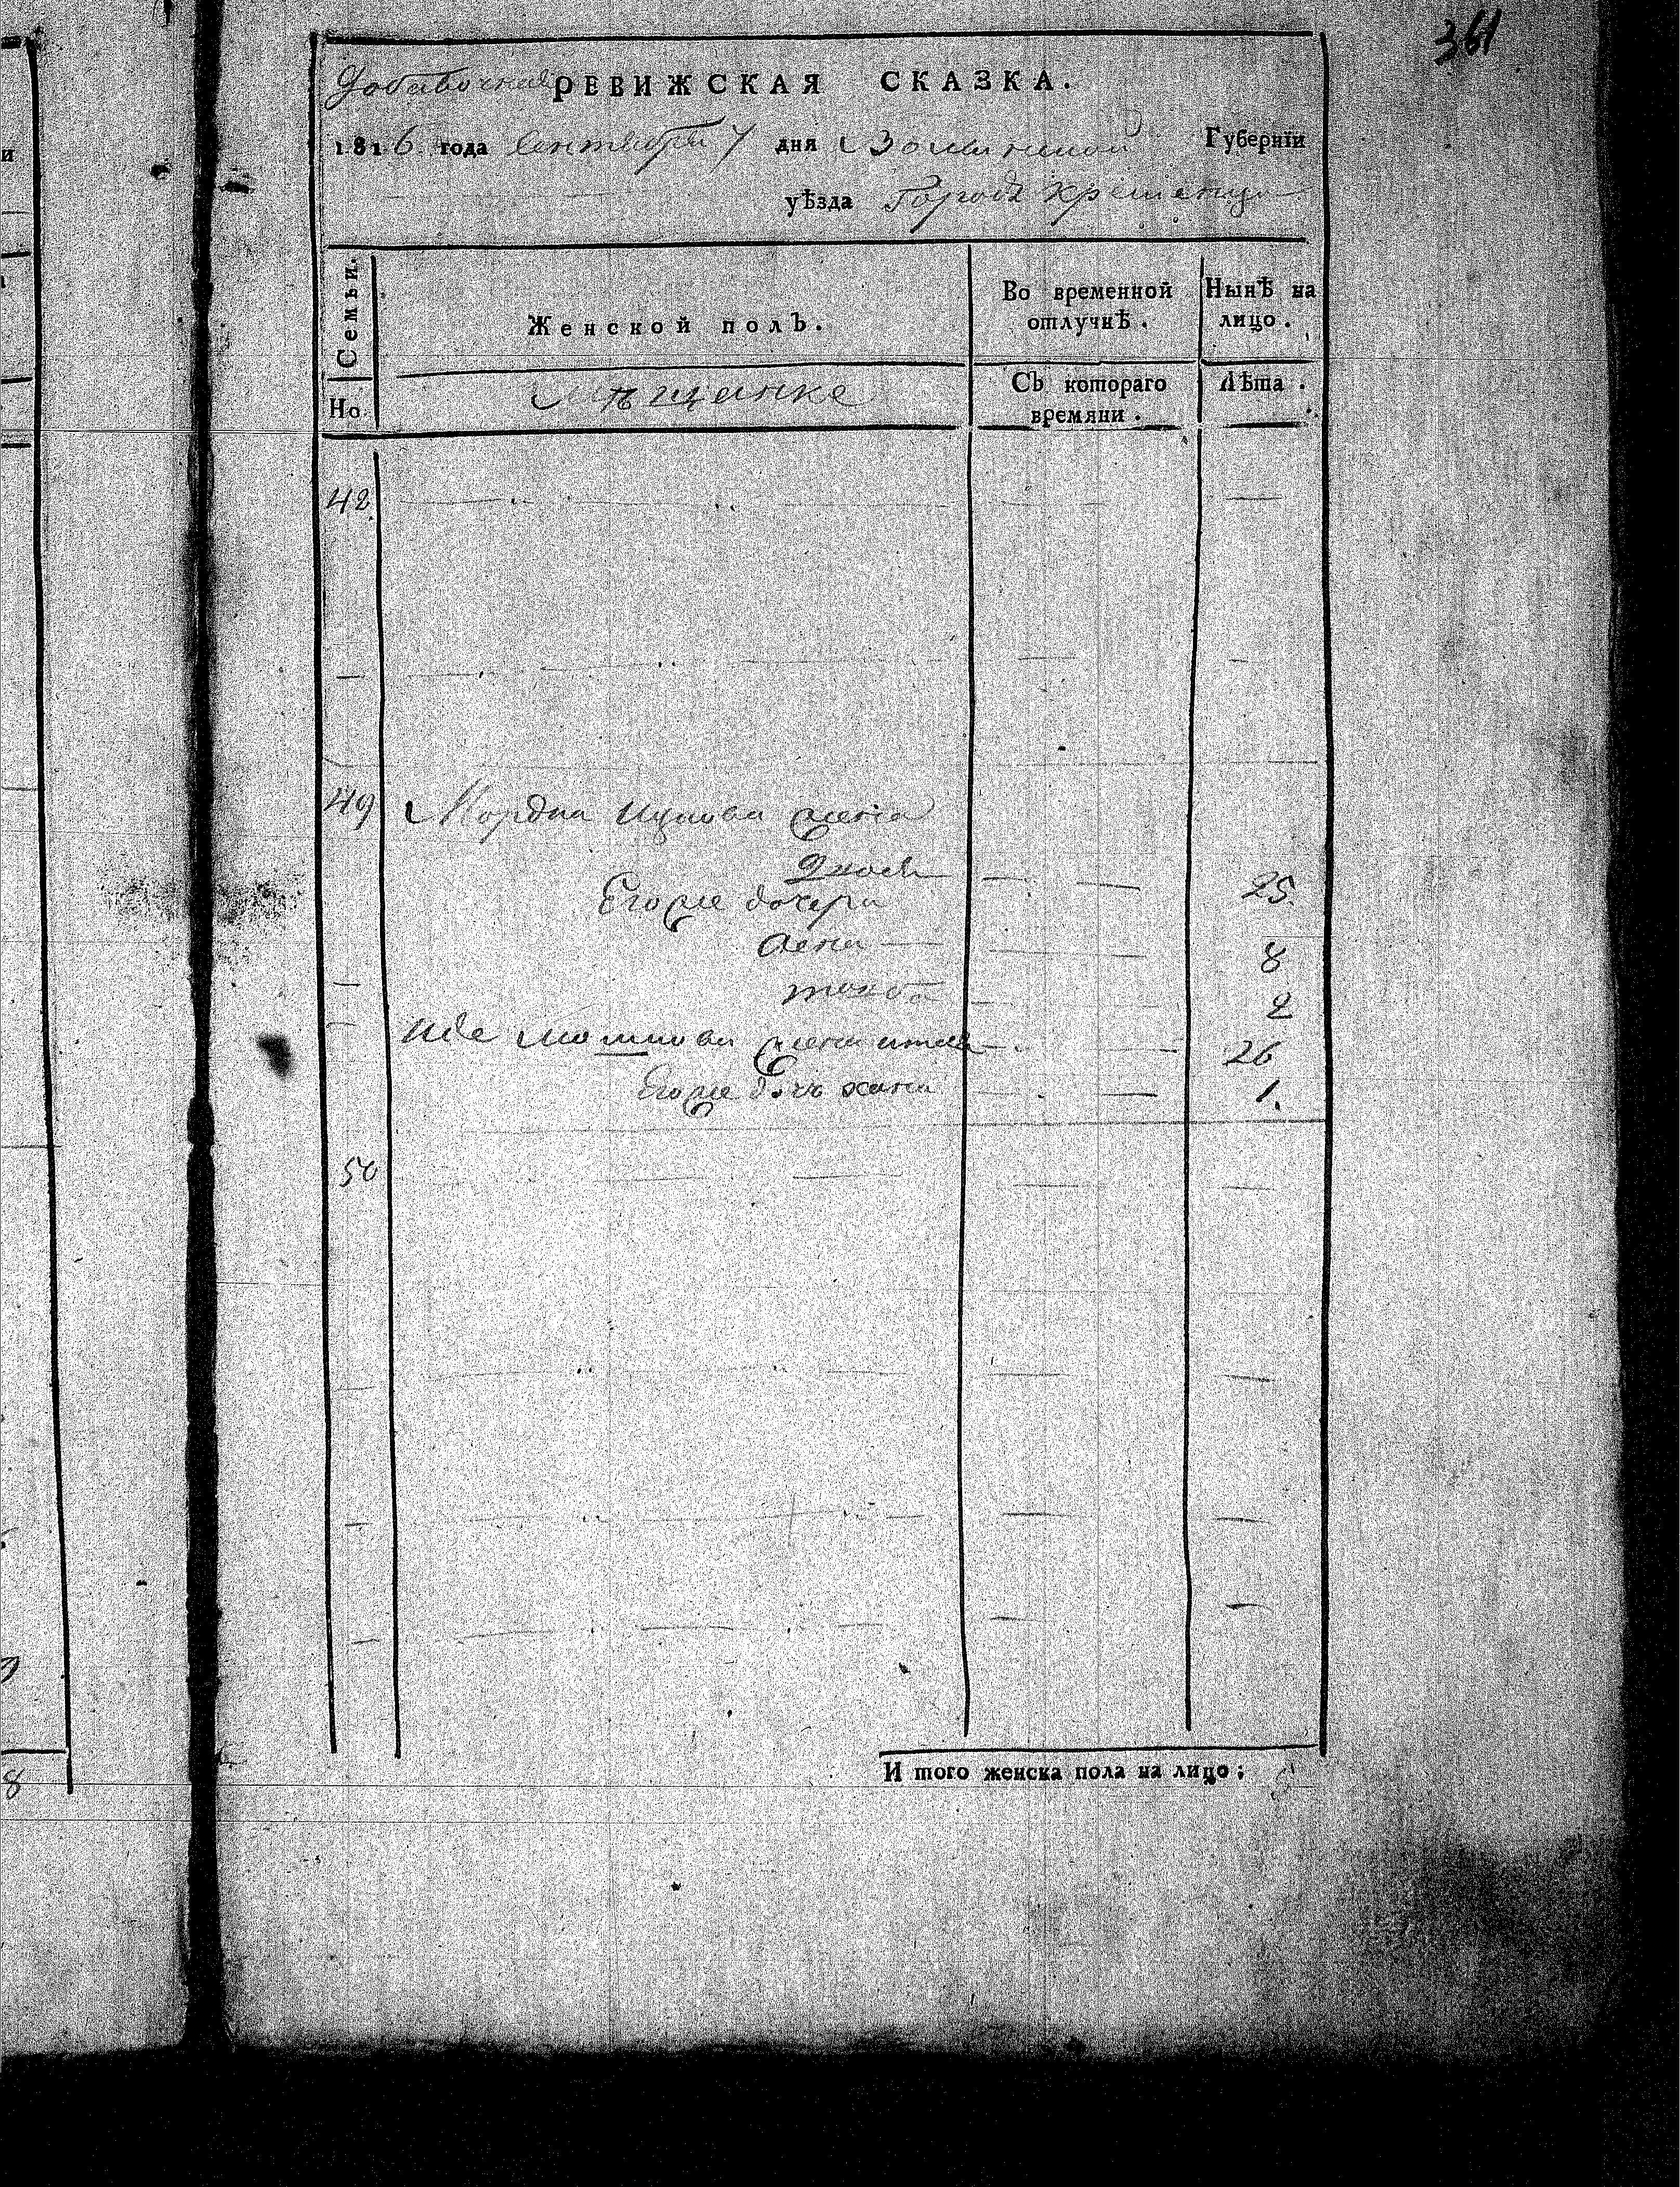 361
Добавочная РЕВИЖСКАЯ СКАЗКА.
1816 года Сентября 7 дня Волынской Губернїи
уѣзда Города Кременца
Семьи.
Женской полЪ.
Во временной отлучкѢ.
НынѢ на лицо.
Но
Мѣщанке
СЪ котораго времяни.
ЛѢта.
42.
49 Мордка Ицкова жена
Двося 25.
Его же дочери
8
2
жена 26
Его же дочь хана 1.
50
И того женска пола на лицо:
и
8